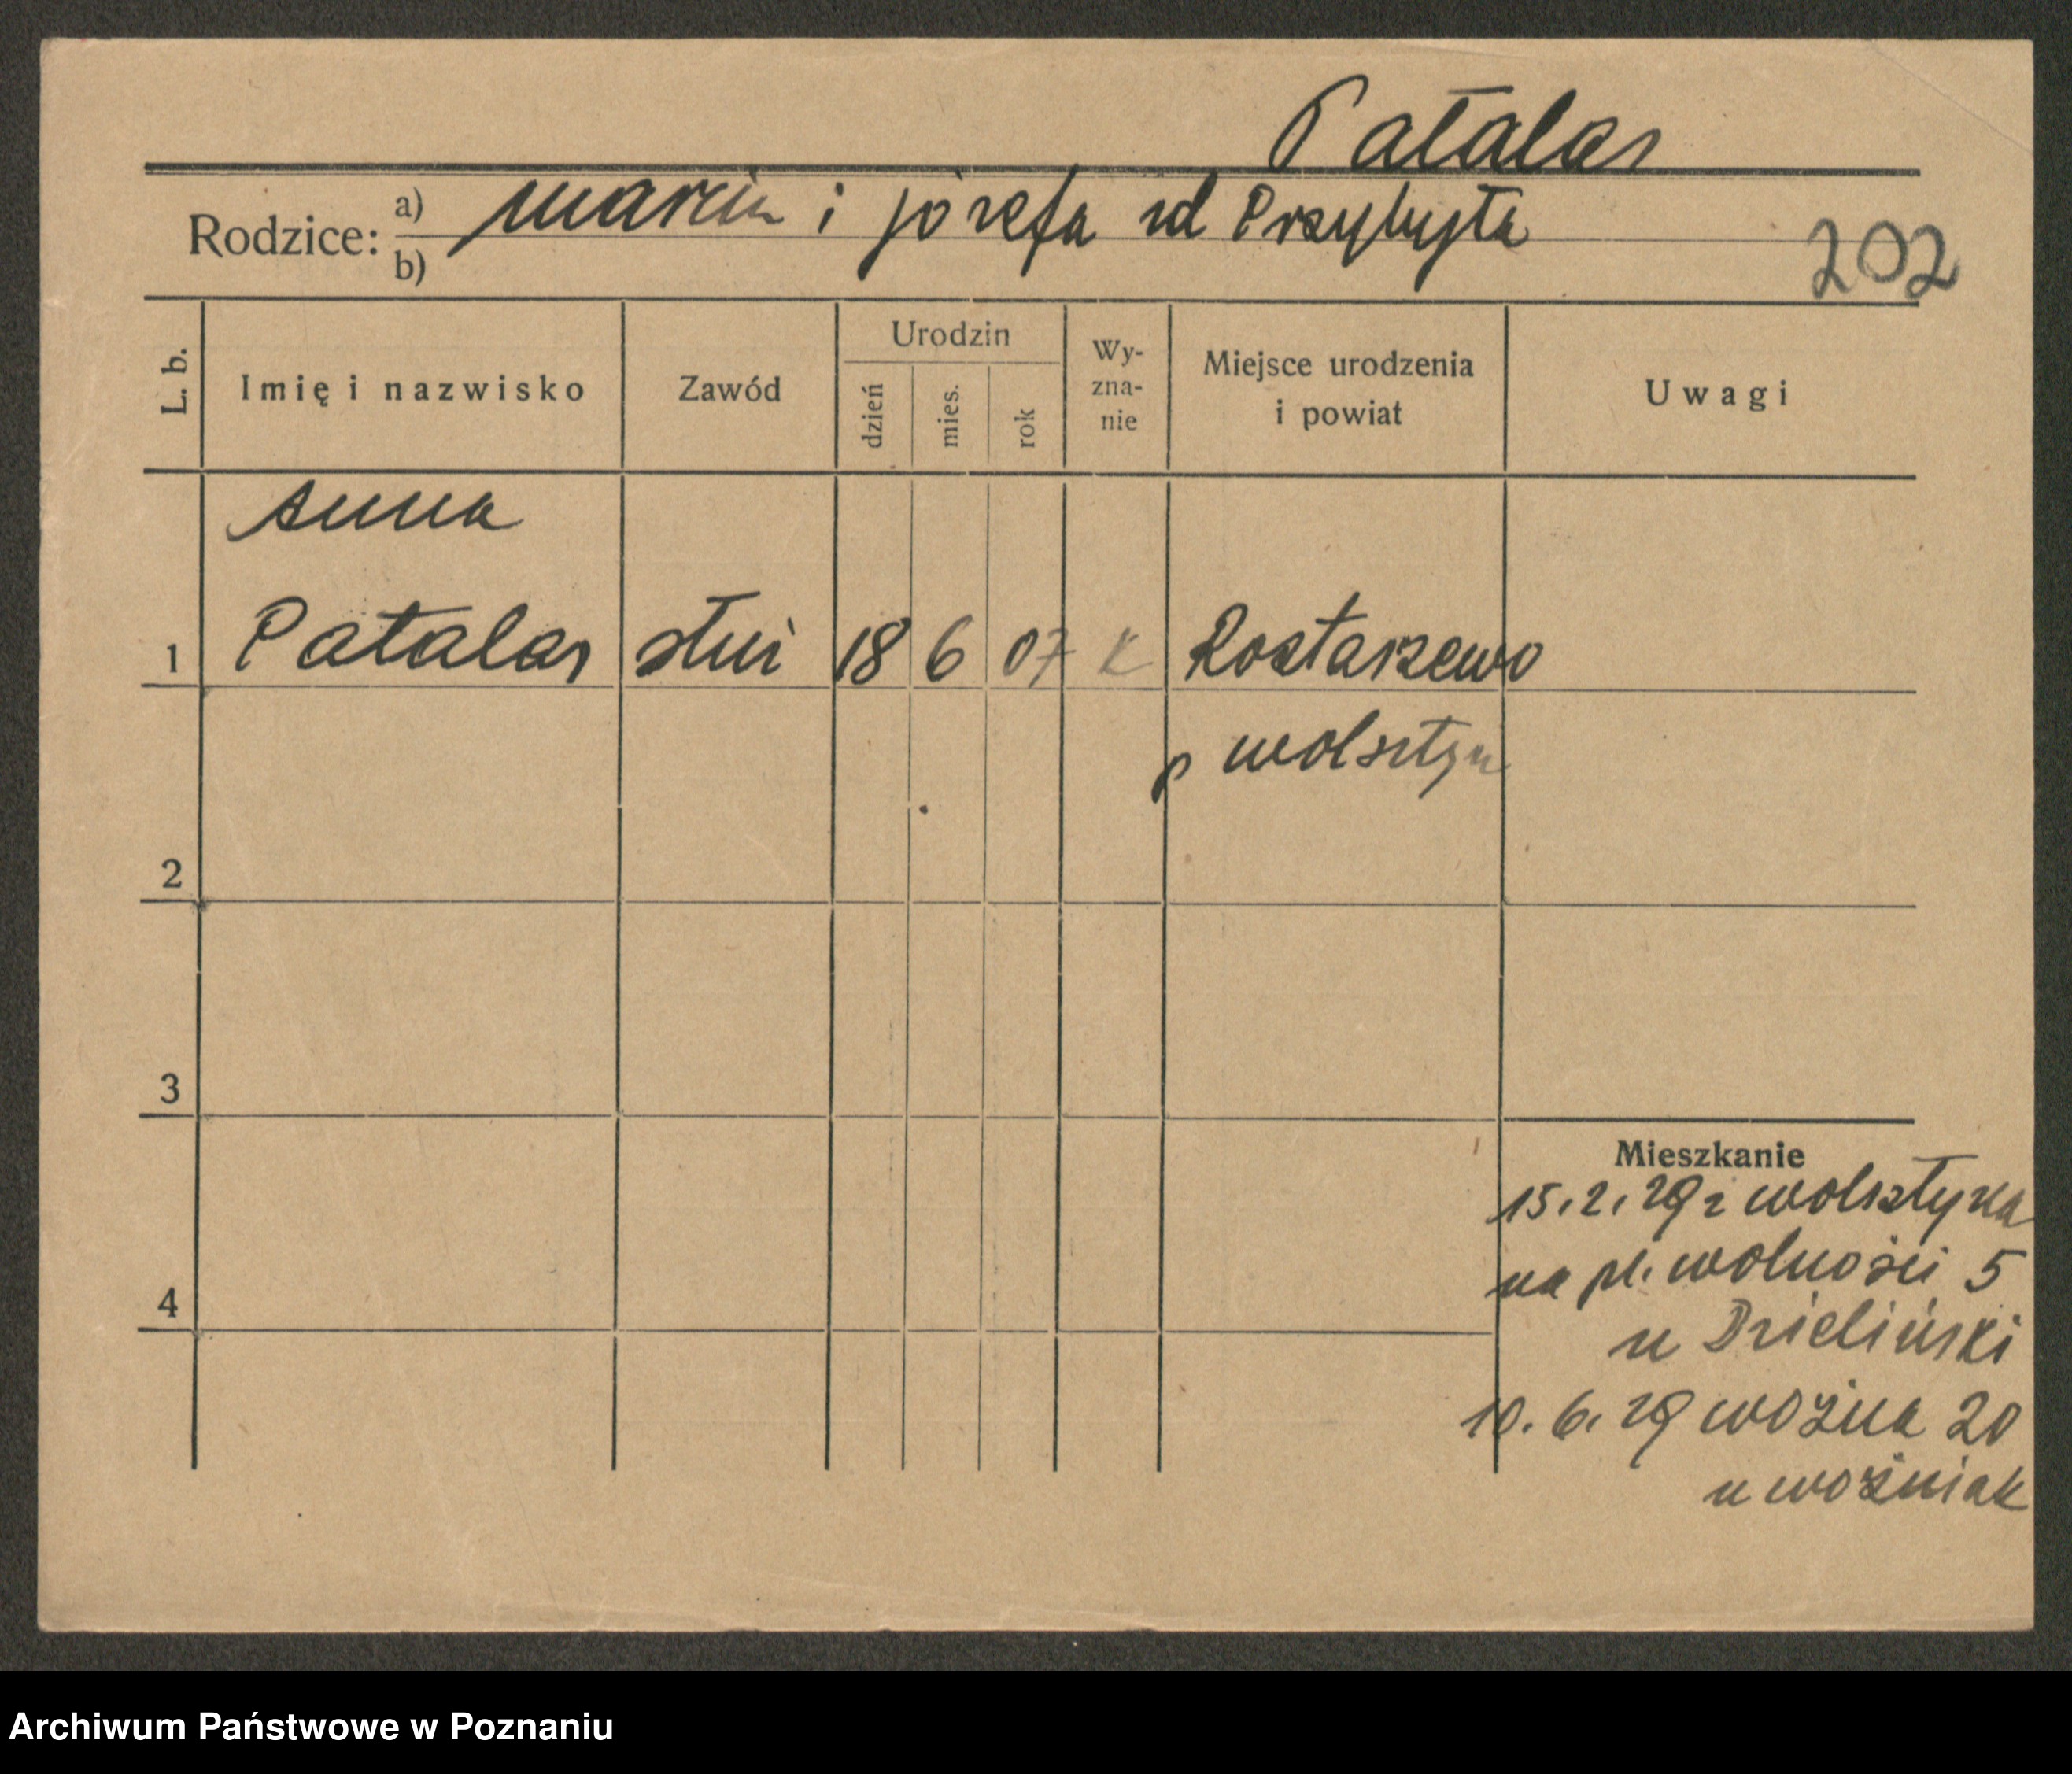 Patalas
Rodzice: a) Marcin i Józefa zd Przybyła
b)
202
L. b.
Imię i nazwisko
Zawód
Urodzin
dzień
mies.
rok
Wy-
zna-
nie
Miejsce urodzenia
i powiat
Uwagi
Anna
1 Patalas służ 18 6 07 K Rostarzewo
p Wolsztyn
2
3
4
Mieszkanie
15.2.29 z Wolsztyna
na pl. Wolności 5
u Dzieliński
10.6.29 Woźna 20
u Woźniak
Archiwum Państwowe w Poznaniu